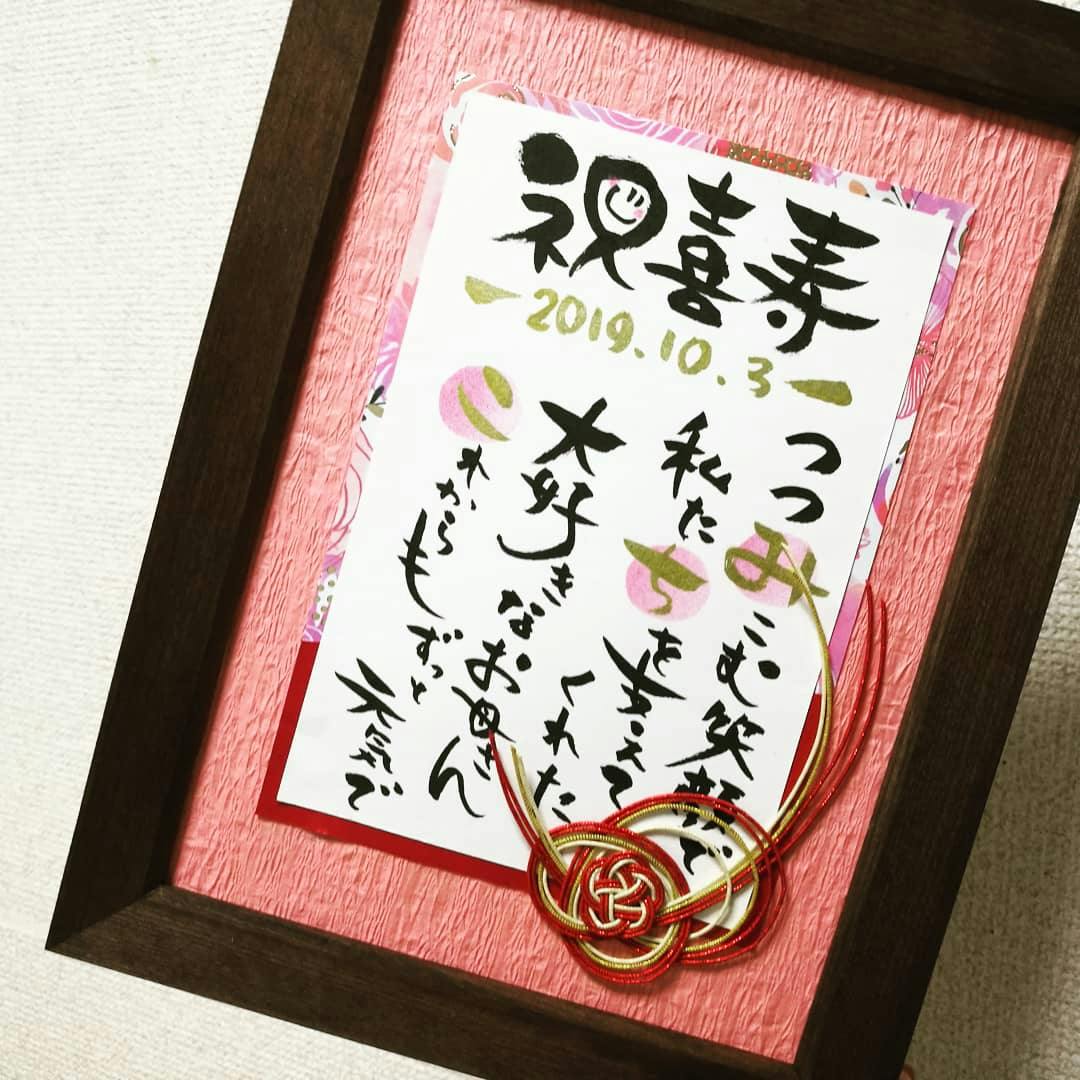 祝喜寿
2019.10.3
つつみこむ笑顔で
私たちを支えて
くれた
大好きなお母さん
これからもずっと
元気で